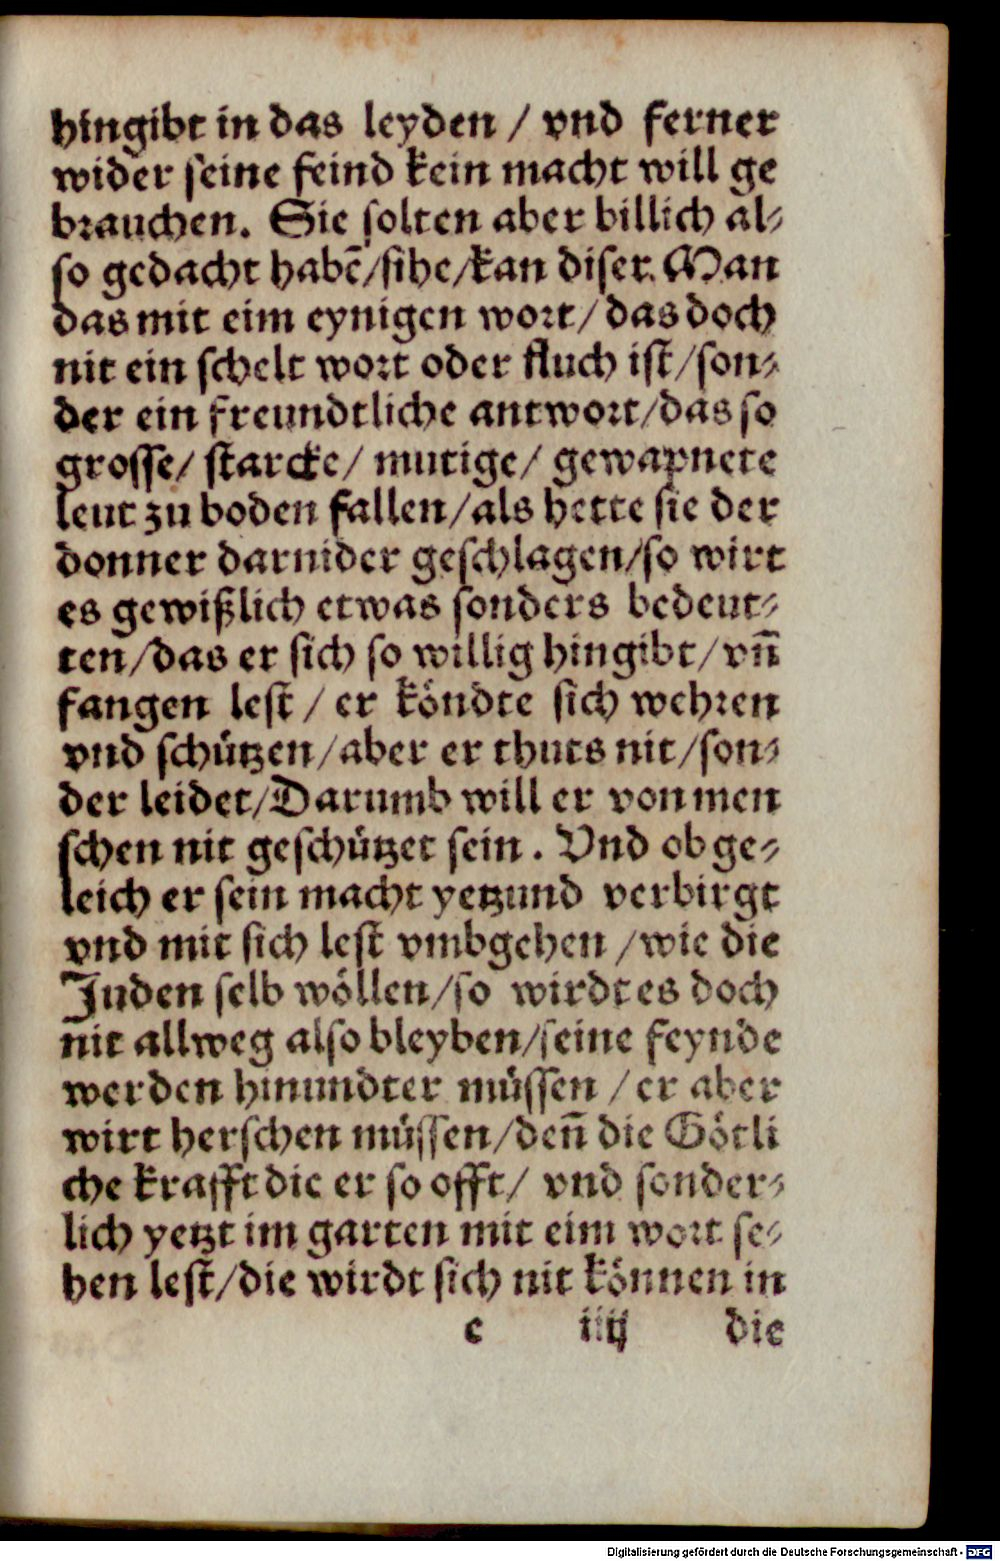 hingibt in das leyden / vnd ferner
wider seine feind kein macht will ge
brauchen. Sie solten aber billich al⸗
so gedacht habē/sihe/kan diser Man
das mit eim eynigen wort/das doch
nit ein schelt wort oder fluch ist/son⸗
der ein freundtliche antwort/das so
grosse/ starcke/ mutige/ gewapnete
leut zu boden fallen/als hette sie der
donner darnider geschlagen/so wirt
es gewißlich etwas sonders bedeut⸗
ten/das er sich so willig hingibt/vn̄
fangen lest / er köndte sich wehren
vnd schützen/aber er thuts nit/son⸗
der leidet/Darumb will er von men
schen nit geschützet sein. Vnd ob ge⸗
leich er sein macht yetzund verbirgt
vnd mit sich lest vmbgehen /wie die
Juden selb wöllen/so wirdt es doch
nit allweg also bleyben/seine feynde
werden hinundter müssen /er aber
wirt herschen müssen/den̄ die Götli
che krafft die er so offt/ vnd sonder⸗
lich yetzt im garten mit eim wort se⸗
hen lest/die wirdt sich nit können in
c iiij die
Digitalisierung gefördert durch die Deutsche Forschungsgemeinschaft - DFG